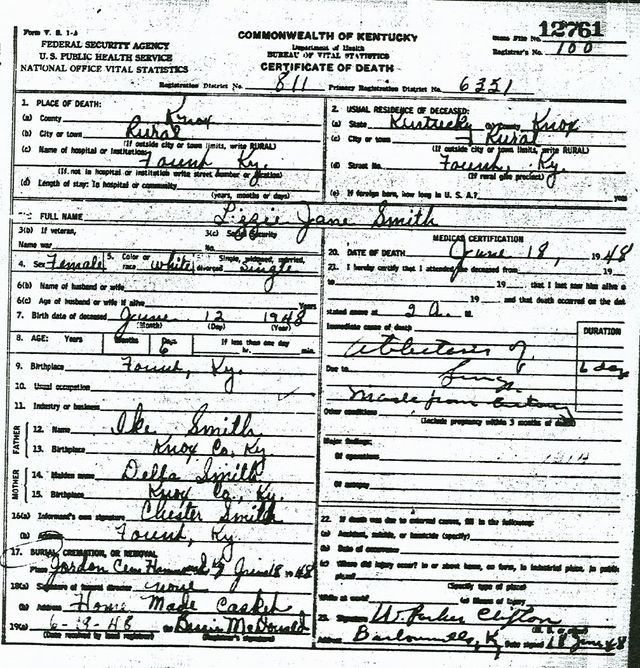 Form V. S. 1-A
FEDERAL SECURITY AGENCY
U. S. PUBLIC HEALTH SERVICE
NATIONAL OFFICE VITAL STATISTICS
COMMONWEALTH OF KENTUCKY
Department of Health
BUREAU OF VITAL STATISTICS
CERTIFICATE OF DEATH
State File No. 12761
Registrar's No. 100
Registration District No. 811 Primary Registration District No. 6351
1. PLACE OF DEATH:
(a) County Knox
(b) City or town Rural
(If outside city or town limits, write RURAL)
(c) Name of hospital or institution:
Fount, Ky.
(If not in hospital or institution write street number or location)
(d) Length of stay: In hospital or community
(years, months or days)
2. USUAL RESIDENCE OF DECEASED:
(a) State Kentucky (b) County Knox
(c) City or town Rural
(If outside city or town limits, write RURAL)
(d) Street No. Fount, Ky.
(If rural give precinct)
(e) If foreign born, how long in U. S. A.? years
FULL NAME Lizzie Jane Smith
3(b) If veteran,
Name war
3(c) Social Security
No.
4. Sex Female 5. Color or race white Single, widowed, married, divorced Single
6(b) Name of husband or wife
6(c) Age of husband or wife if alive Years
7. Birth date of deceased June 12 1948
(Month) (Day) (Year)
8. AGE: Years Months Days 6 If less than one day hr. min.
9. Birthplace Fount, Ky.
10. Usual occupation
11. Industry or business
FATHER
12. Name Ike Smith
13. Birthplace Knox Co. Ky.
MOTHER
14. Maiden name Della Smith
15. Birthplace Knox Co., Ky.
16(a) Informant's own signature Chester Smith
(b) Address Fount, Ky.
17. BURIAL, CREMATION, OR REMOVAL
Place Jordon Cem Date June 18 1948
18(a) Signature of funeral director none
(b) Address Home Made Casket
19(a) 6-19-48 Bessie McDonald
(Date received by local registrar) (Registrar's signature)
MEDICAL CERTIFICATION
20. DATE OF DEATH June 18, 1948
21. I hereby certify that I attended the deceased from 19
to 19 that I last saw him alive on
19 and that death occurred on the date
stated above at 2 A. M.
Immediate cause of death
DURATION
Atelectasis of
Due to Lung 6 day
Made from
Other conditions
(Include pregnancy within 3 months of death)
Major findings:
Of operations
Of autopsy
22. If death was due to external causes, fill in the following:
(a) Accident, suicide, or homicide (specify)
(b) Date of occurrence
(c) Where did injury occur? in or about home, on farm, in industrial place, in public
place?
(Specify type of place)
While at work? (e) Means of injury
23. Signature W. Parker Clifton
Address Barbourville, Ky Date signed 18 June 48